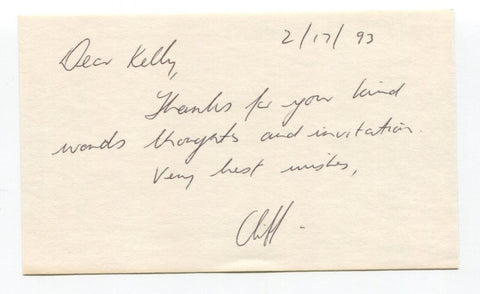 2/17/93
Dear Kelly,
Thanks for your kind
words thoughts and invitation.
Very best wishes,
Cliff